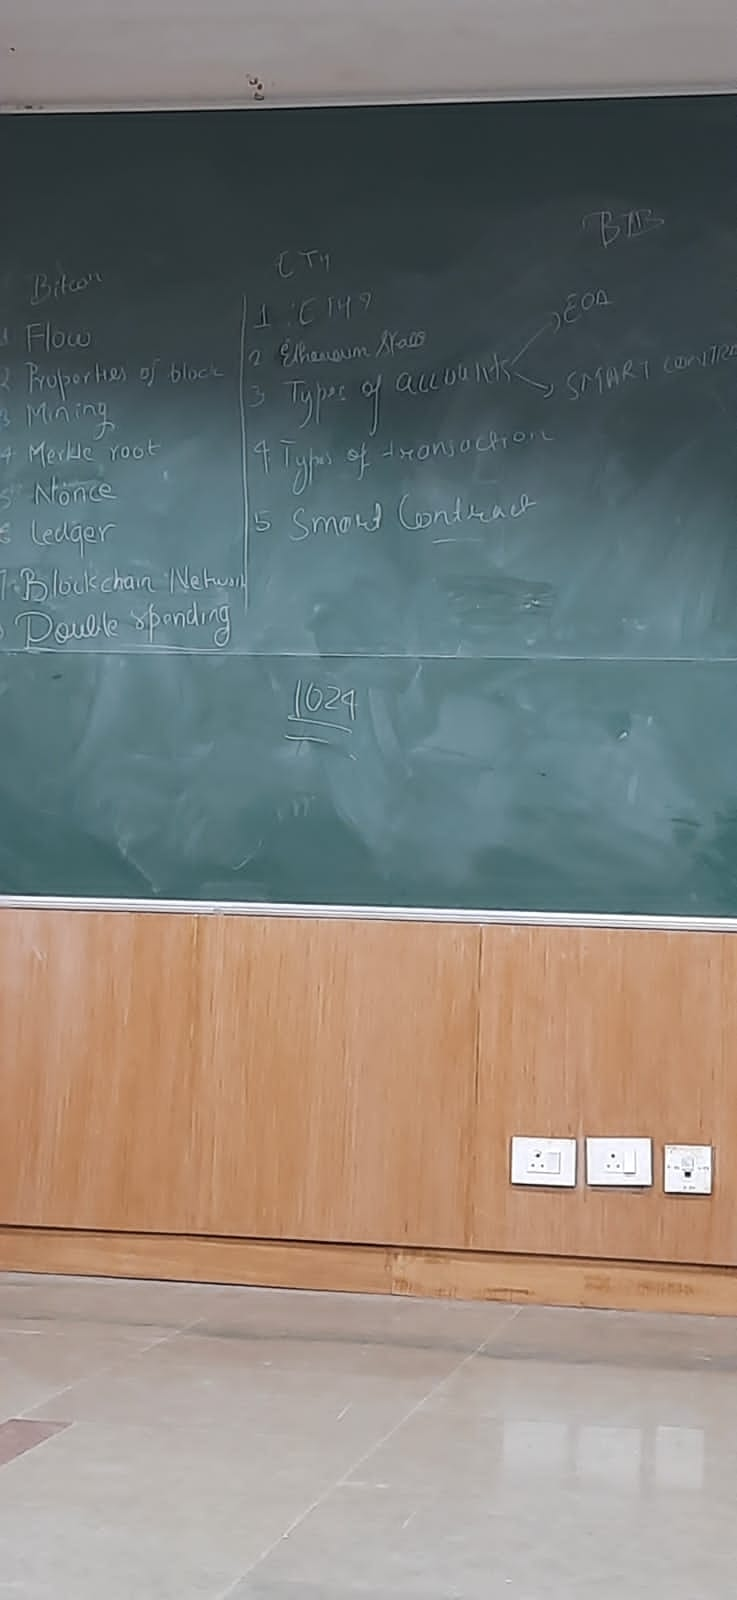 BTB
Bitcoin
1 Flow
2 Properties of block
3 Mining
4 Merkle root
5 Nonce
6 Ledger
7. Blockchain Network
Double spending
ETH
1 ETH?
2 Ethereum State
3 Types of accounts
EOA
SMART CONTRA
4 Types of transaction
5 Smart Contract
1024